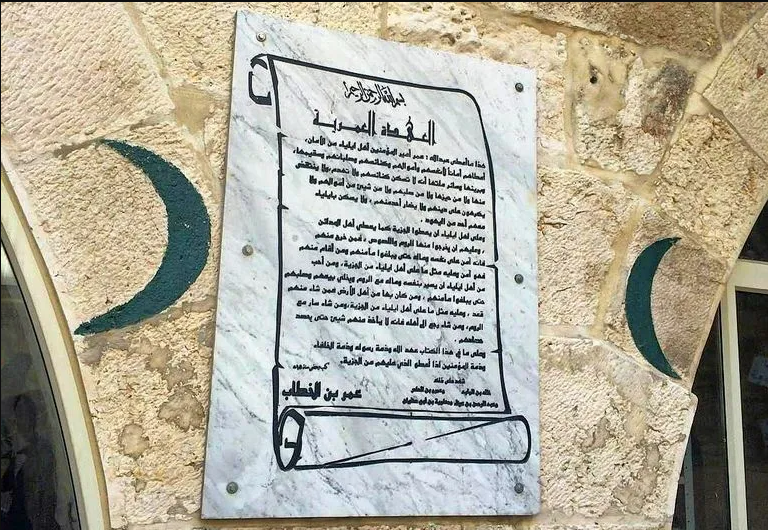 بسم الله الرحمن الرحيم
العهدة العمرية
هذا ما أعطى عبدالله : عمر أمير المؤمنين أهل ايلياء من الأمان،
أعطاهم أماناً لأنفسهم وأموالهم وكنائسهم وصلبانهم وسقيمها،
وبريئها وسائر ملتها أنه لا تسكن كنائسهم ولا تهدم ولا ينتقض
منها ولا من حيزها ولا من صليبهم ولا من شيئ من أموالهم ولا
يكرهون على دينهم ولا يضار أحد منهم . ولا يسكن بايلياء
معهم أحد من اليهود .
وعلى أهل ايلياء أن يعطوا الجزية كما يعطي أهل المدائن
. وعليهم أن يخرجوا منها الروم واللصوص ، فمن خرج منهم
فانه آمن على نفسه وماله حتى يبلغوا مأمنهم ومن أقام منهم
فهو آمن وعليه مثل ما على أهل ايلياء من الجزية، ومن أحب
من أهل ايلياء أن يسير بنفسه وماله مع الروم ويخلي بيعهم وصلبهم
حتى يبلغوا مأمنهم ، ومن كان بها من أهل الأرض فمن شاء منهم
قعد ، وعليه مثل ما على أهل ايلياء من الجزية،ومن شاء سار مع
الروم، ومن شاء رجع الى أهله فانه لا يأخذ منهم شيئ حتى يحصد
حصادهم .
وعلى ما في هذا الكتاب عهد الله وذمة رسوله وذمة الخلفاء
وذمة المؤمنين اذا أعطوا الذي عليهم من الجزية.
شهد على ذلك
خالد بن الوليد وعمرو بن العاص
وعبدالرحمن بن عوف ومعاوية بن أبي سفيان
عمر بن الخطاب